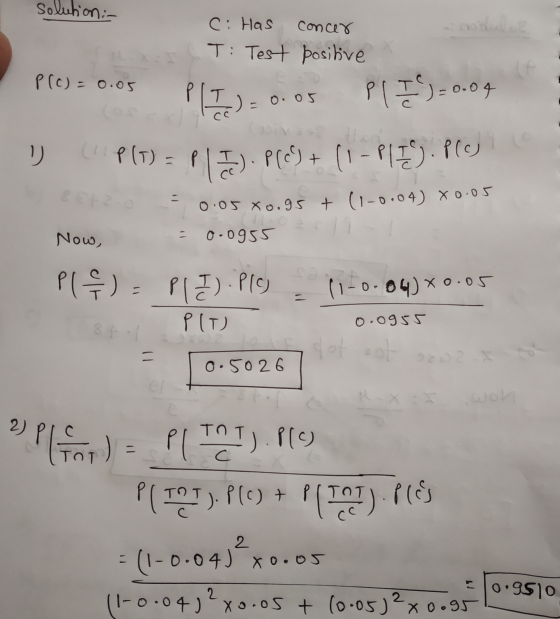 Solution:-
C: Has concer
T: Test positive
P(C) = 0.05 P(T/Cᶜ) = 0.05 P(Tᶜ/C) = 0.04
1) P(T) = P(T/Cᶜ). P(Cᶜ) + (1 - P(Tᶜ/C). P(C)
= 0.05 × 0.95 + (1-0.04) × 0.05
= 0.0955
Now,
P(C/T) = P(T/C). P(C) / P(T) = (1-0.04) × 0.05 / 0.0955
= 0.5026
2) P(C/T∩T) = P(T∩T/C). P(C) / P(T∩T/C). P(C) + P(T∩T/Cᶜ). P(Cᶜ)
= (1-0.04)² × 0.05 / (1-0.04)² × 0.05 + (0.05)² × 0.95 = 0.9510